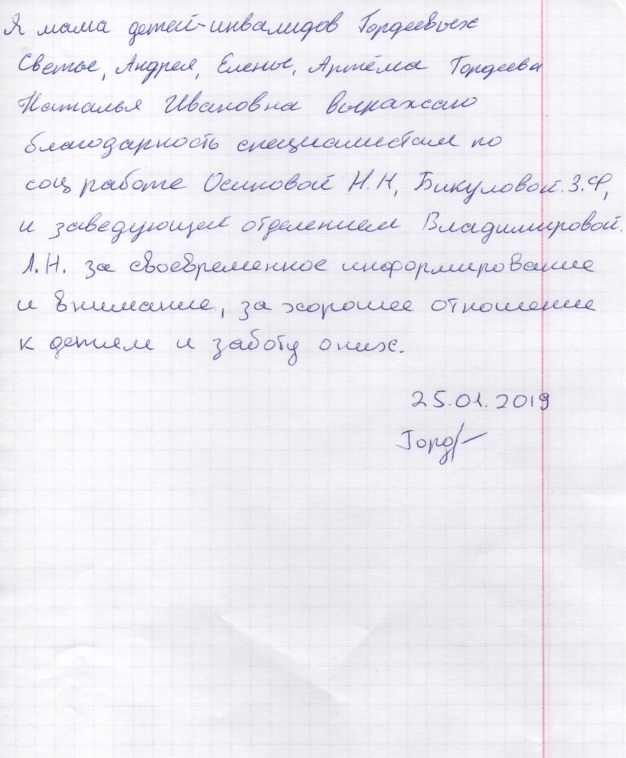 Я мама детей-инвалидов Гордеевых
Светы, Андрея, Елены, Артёма Гордеева
Наталья Ивановна выражаю
благодарность специалистам по
соц работе Осиповой Н.Н, Бикуловой.З.Ф,
и заведующей отделением Владимировой.
Л.Н. за своевременное информирование
и внимание, за хорошее отношение
к детям и заботу о них.
25.01.2019
Горд